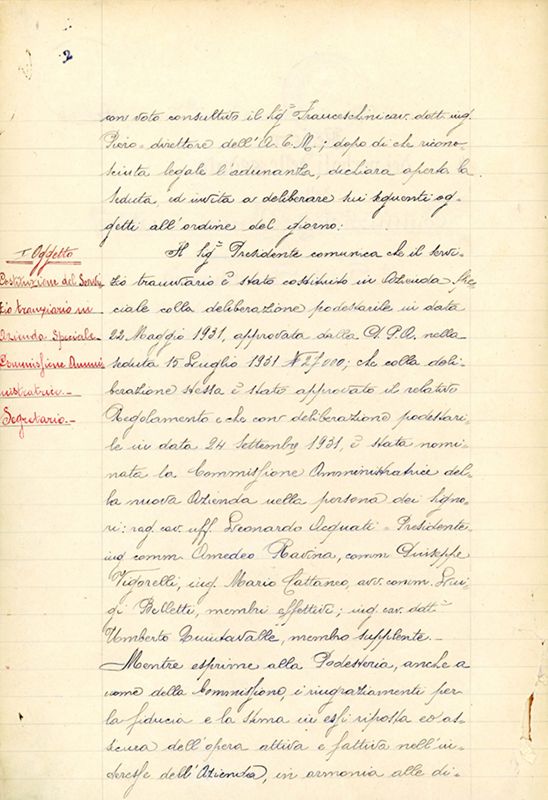 2
con voto consultivo il Sigʳ Franceschini cav. dott. ing.
Piero - direttore dell'A.T.M.; dopo di che ricono-
sciuta legale l'adunanza, dichiara aperta la
seduta, ed invita a deliberare sui seguenti og-
getti all'ordine del giorno:
I° Oggetto
Costituzione del Servi
zio tranviario in
Azienda Speciale
Commissione Ammi
nistratrice.-
Segretario.-
Il Sigʳ Presidente comunica che il servi-
zio tranviario è stato costituito in Azienda spe-
ciale colla deliberazione podestarile in data
22 Maggio 1931, approvata dalla G.P.A. nella
seduta 15 Luglio 1931 N° 27000; che colla deli-
berazione stessa è stato approvato il relativo
Regolamento e che con deliberazione podestari-
le in data 24 Settembre 1931, è stata nomi-
nata la Commissione Amministratrice del-
la nuova Azienda nella persona dei Signo-
ri: rag. cav. uff. Leonardo Acquati - Presidente
ing. comm. Amedeo Ravina, comm. Giuseppe
Vigorelli, ing. Mario Cattaneo, avv. comm. Lui-
gi Belletti, membri effettivi; ing. cav. dott.
Umberto Quintavalle, membro supplente.-
Mentre esprime alla Podesteria, anche a
nome della Commissione, i ringraziamenti per
la fiducia e la stima in essi riposta ed as-
sicura dell'opera attiva e fattiva nell'in-
teresse dell'Azienda, in armonia alle di-